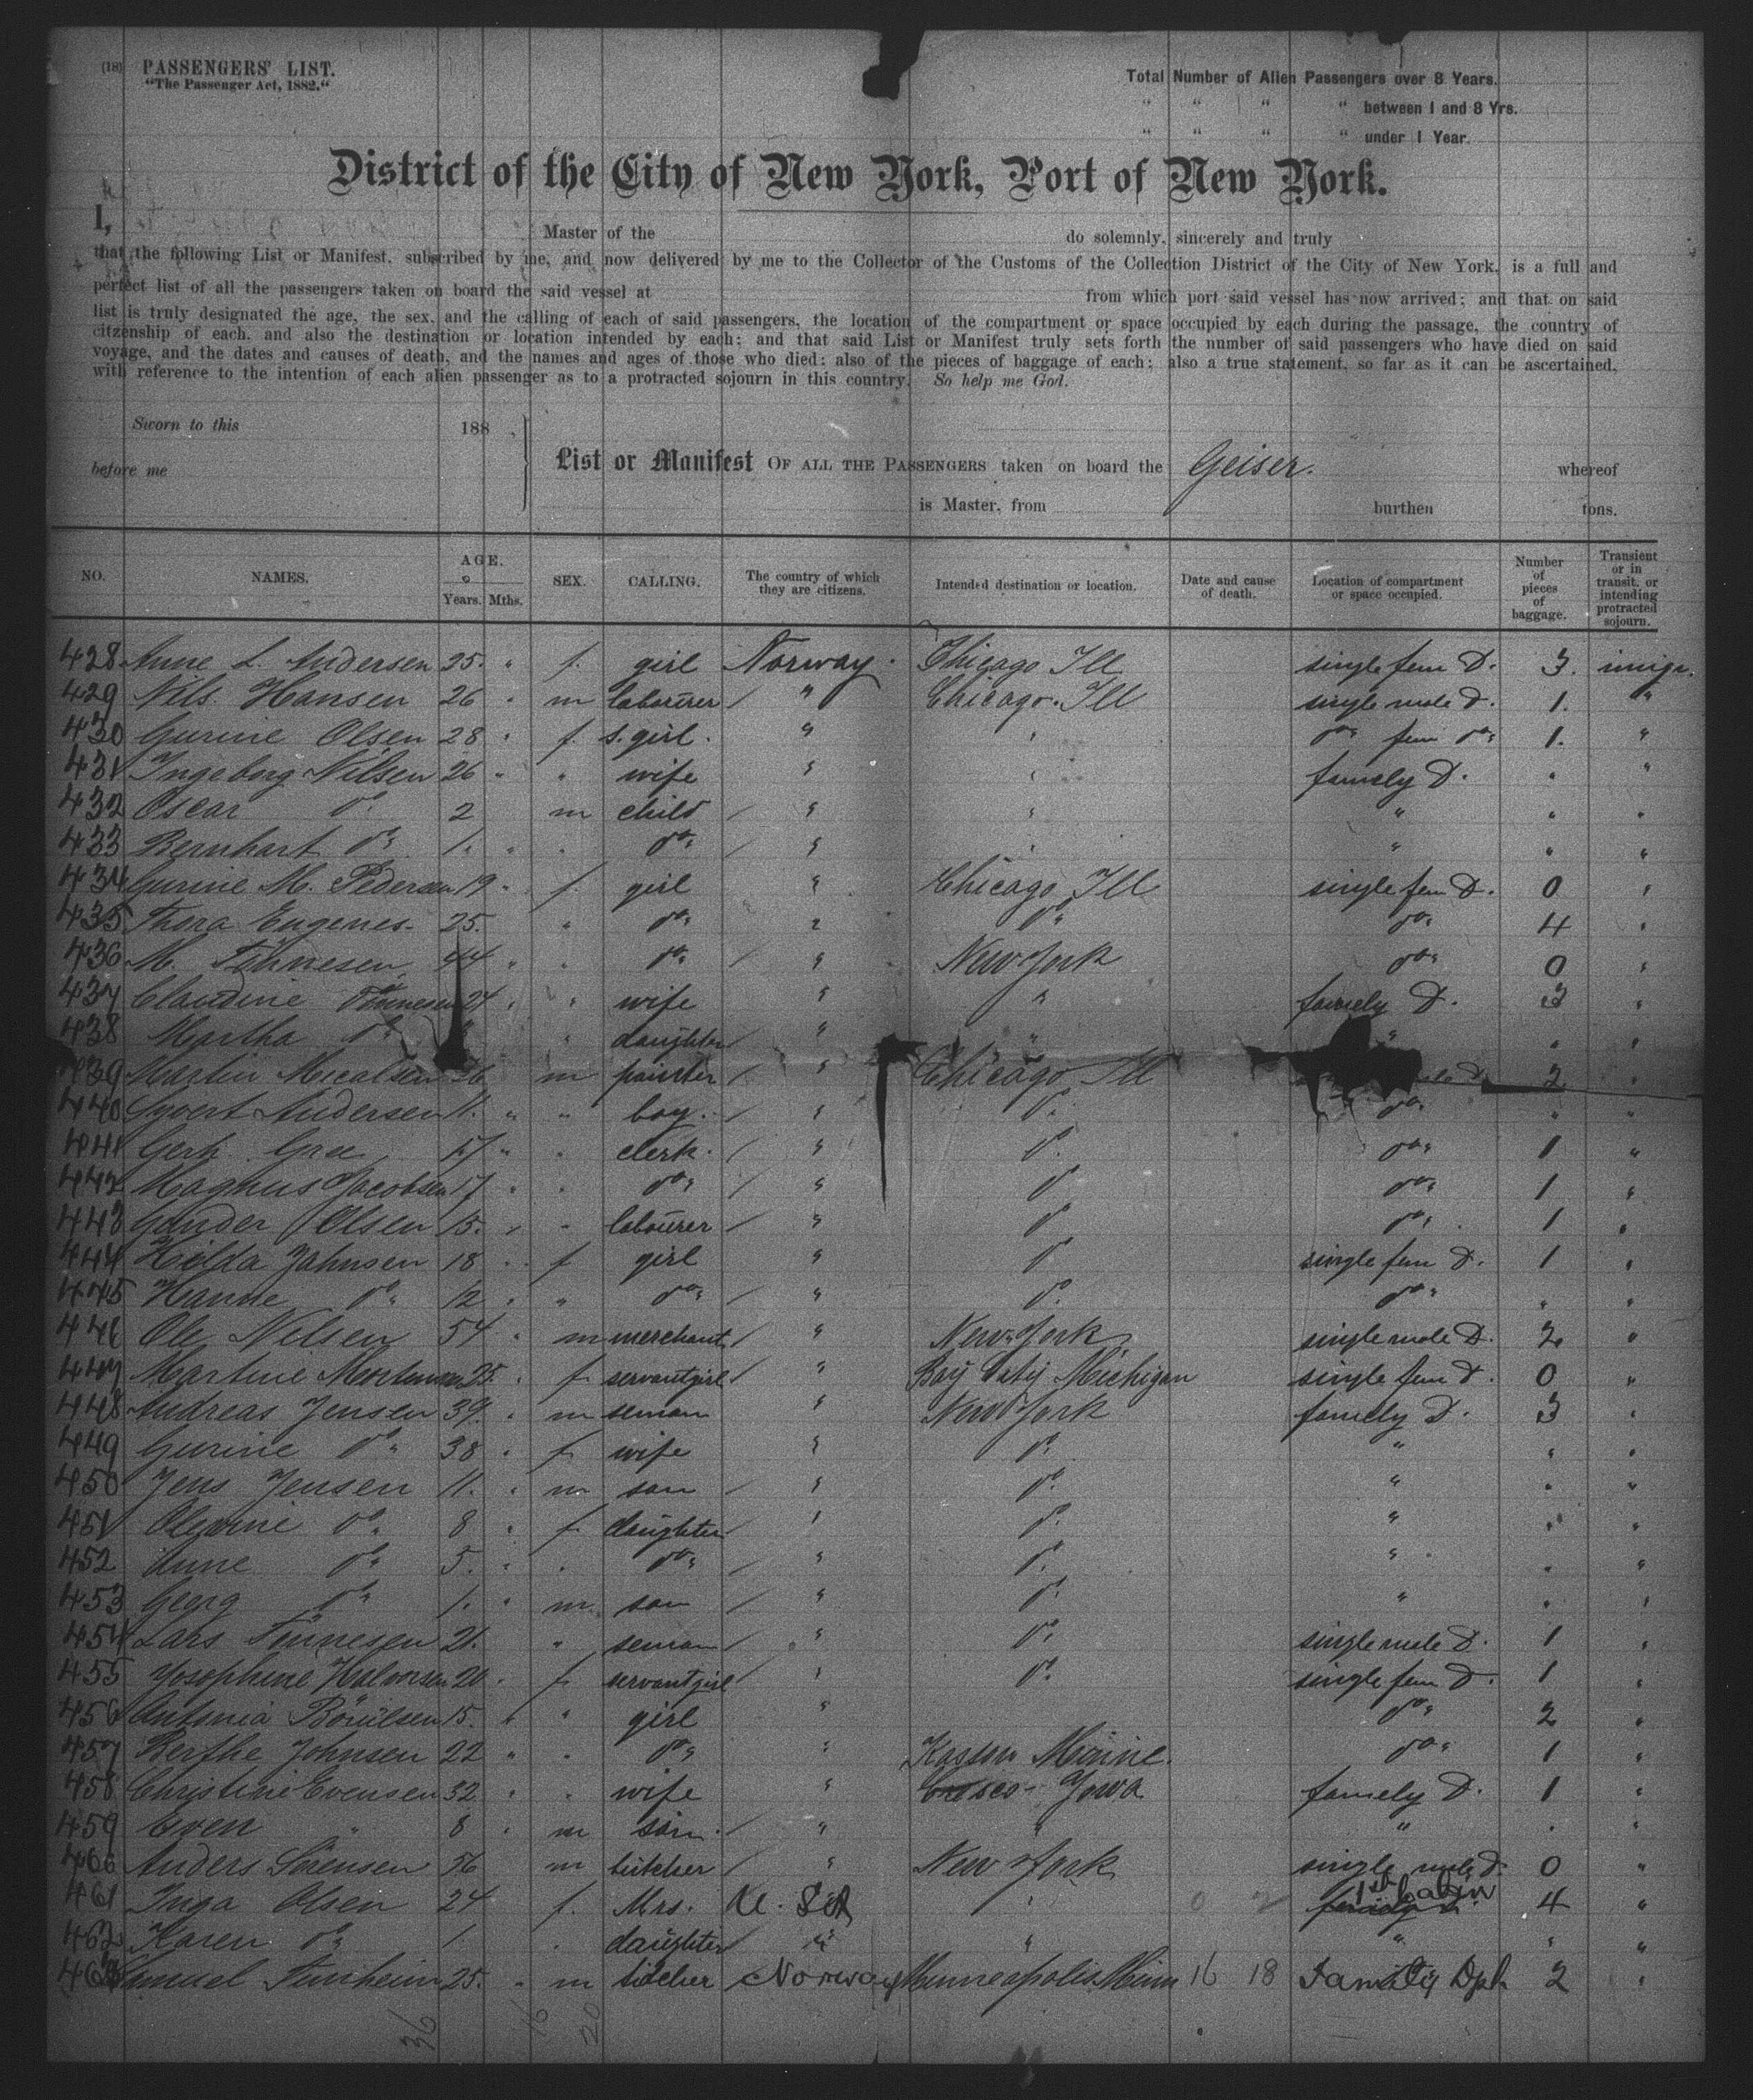 (18) PASSENGERS' LIST.
"The Passenger Act, 1882."
Total Number of Alien Passengers over 8 Years.
" " " " between 1 and 8 Yrs.
" " " " under 1 Year.
District of the City of New York, Port of New York.
I, Master of the do solemnly, sincerely and truly
that the following List or Manifest, subscribed by me, and now delivered by me to the Collector of the Customs of the Collection District of the City of New York, is a full and
perfect list of all the passengers taken on board the said vessel at from which port said vessel has now arrived; and that on said
list is truly designated the age, the sex, and the calling of each of said passengers, the location of the compartment or space occupied by each during the passage, the country of
citzenship of each, and also the destination or location intended by each; and that said List or Manifest truly sets forth the number of said passengers who have died on said
voyage, and the dates and causes of death, and the names and ages of those who died; also of the pieces of baggage of each; also a true statement, so far as it can be ascertained,
with reference to the intention of each alien passenger as to a protracted sojourn in this country. So help me God.
Sworn to this 188 .
before me
List or Manifest OF ALL THE PASSENGERS taken on board the Geiser. whereof
is Master, from burthen tons.
NO. NAMES. AGE. Years. Mths. SEX. CALLING. The country of which they are citizens. Intended destination or location. Date and cause of death. Location of compartment or space occupied. Number of pieces of baggage. Transient or in transit, or intending protracted sojourn.
428 Anne L. Andersen 25. " f. girl Norway. Chicago Ill single fem D. 3. imigr.
429 Nils Hansen 26 " m labourer / " Chicago. Ill single male D. 1. "
430 Gurine Olsen 28 " f. s. girl. " " do fem do 1. "
431 Ingeborg Nilsen 26 " " wife " " famely D. " "
432 Oscar do 2 m child / " " " " "
433 Bernhart do 1. " " do / " " " " "
434 Gurine M. Pedersen 19 " f. girl " Chicago Ill single fem D. 0 "
435 Thora Eugenes. 25. " do " do do 4 "
436 M. Tönnesen 44 " " do / " New York do 0 "
437 Claudine Tönnesen 24 " " wife " " famely D. 3 "
438 Martha do " daughter / " " " " "
439 Martin Micalsen 36 m painter / " Chicago Ill 2 "
440 Syvert Andersen 11. " " boy. / " do do " "
441 Gerh. 17 " " clerk. / " do do 1 "
442 Magnus Jacobsen 17 " " do / " do do 1 "
443 Gunder Olsen 15. " " labourer / " do do 1 "
444 Hilda Jahnsen 18 " f girl " do single fem D. 1 "
445 Hanne do 12 " " do / " do do " "
446 Ole Nilsen 54 " m merchant / " New York single male D. 2 "
447 Martine Mortensen 25. " f servantgirl " Bay City Michigan single fem D. 0 "
448 Andreas Jensen 39. " m seman " New York famely D. 3 "
449 Gurine do 38 " f wife " do " " "
450 Jens Jensen 11. " m son / " do " " "
451 do 8 " f daughter " do " " "
452 Anne do 5. " " do / " do " " "
453 Georg do 1. " m son / " do " " "
454 Lars Tönnesen 21. " seman / " do single male D. 1 "
455 Josephine Halvorsen 20 " f servantgirl " do single fem D. 1 "
456 Antonia 15. " " girl " do 2 "
457 Berthe Johnsen 22 " " do " Kasson Maine. do 1 "
458 Christine Evensen 32 " " wife " Iowa famely D. 1 "
459 Even " 8 " m son. / " " " " "
460 Anders Sörensen 56 m butcher / " New York single male D. 0 "
461 Inga Olsen 24 f. Mrs. U. St A " 1st Cabin 4 "
462 Karen do 1 " daughter / " " " " "
463 Samuel 25. " m Norway Minneapolis Minn 16 18 Family Dpt 2 "
36 16 20